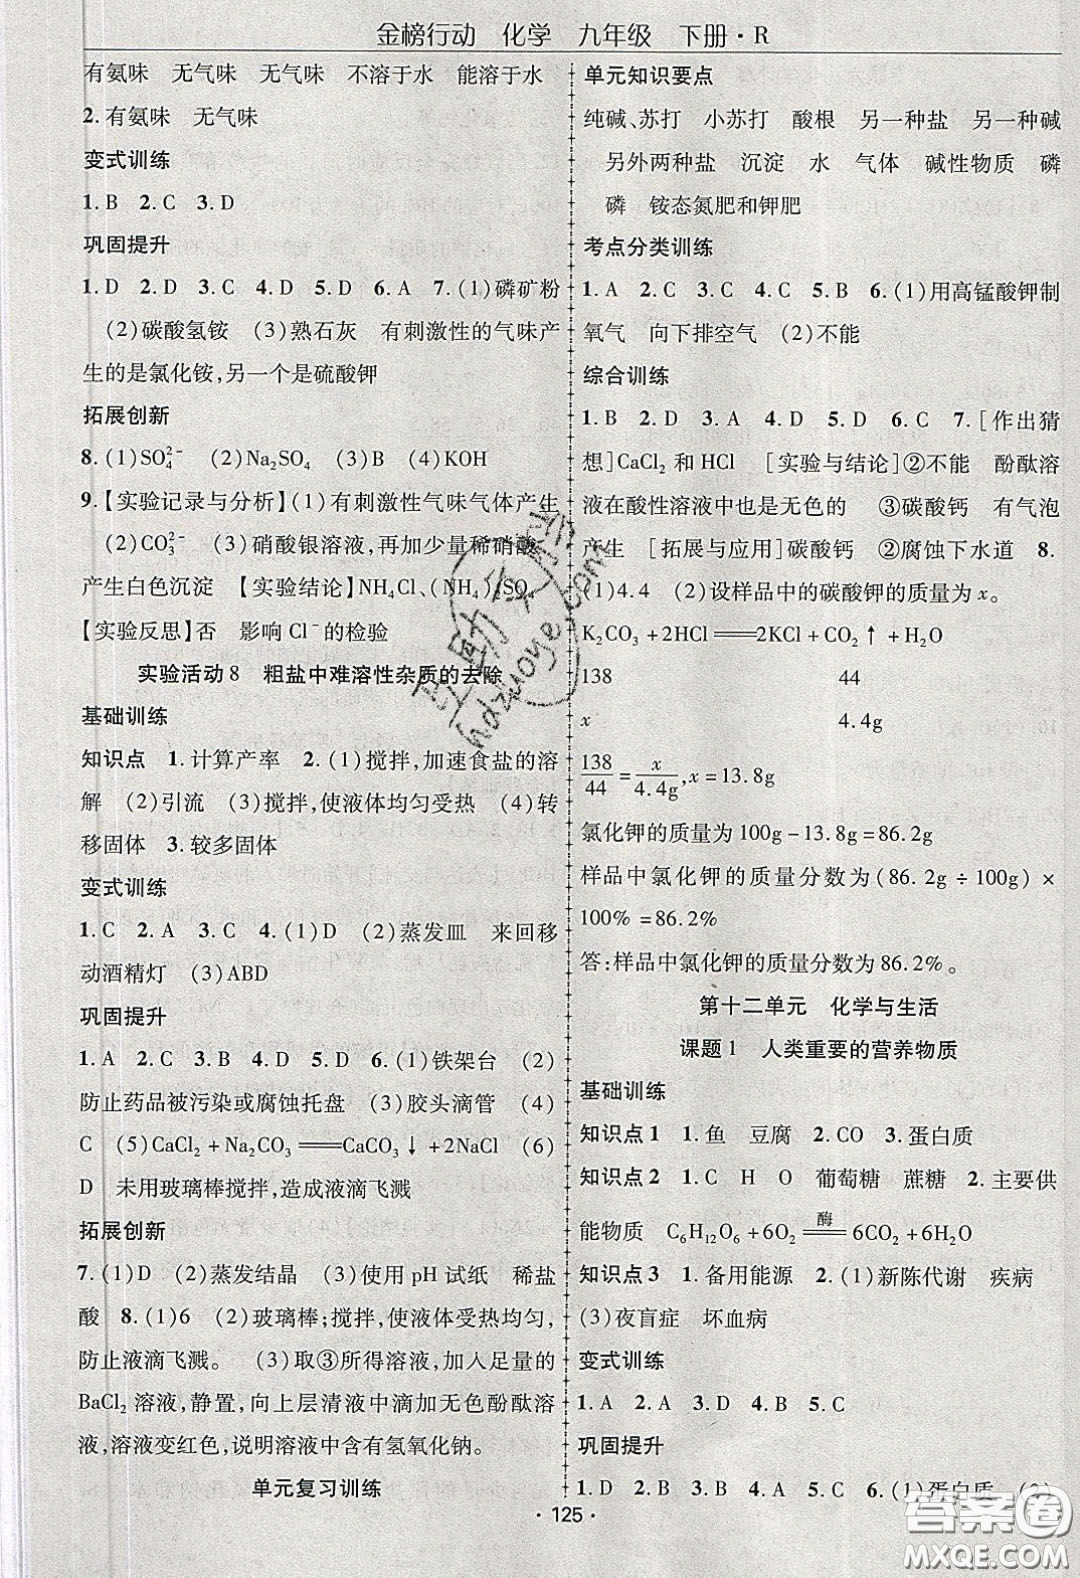 金榜行动 化学 九年级 下册·R
有氨味 无气味 无气味 不溶于水 能溶于水
2. 有氨味 无气味
变式训练
1. B 2. C 3. D
巩固提升
1. D 2. D 3. D 4. D 5. D 6. A 7. (1)磷矿粉
(2)碳酸氢铵 (3)熟石灰 有刺激性的气味产
生的是氯化铵,另一个是硫酸钾
拓展创新
8. (1)SO₄²⁻ (2)Na₂SO₄ (3)B (4)KOH
9.【实验记录与分析】(1)有刺激性气味气体产生
(2)CO₃²⁻ (3)硝酸银溶液,再加少量稀硝酸
产生白色沉淀 【实验结论】NH₄Cl、(NH₄)₂SO₄
【实验反思】否 影响Cl⁻的检验
实验活动8 粗盐中难溶性杂质的去除
基础训练
知识点 1. 计算产率 2. (1)搅拌,加速食盐的溶
解 (2)引流 (3)搅拌,使液体均匀受热 (4)转
移固体 3. 较多固体
变式训练
1. C 2. A 3. C 4. (1)D (2)蒸发皿 来回移
动酒精灯 (3)ABD
巩固提升
1. A 2. C 3. B 4. B 5. D 6. (1)铁架台 (2)
防止药品被污染或腐蚀托盘 (3)胶头滴管 (4)
C (5)CaCl₂+Na₂CO₃══CaCO₃↓+2NaCl (6)
D 未用玻璃棒搅拌,造成液滴飞溅
拓展创新
7. (1)D (2)蒸发结晶 (3)使用pH试纸 稀盐
酸 8. (1)6 (2)玻璃棒;搅拌,使液体受热均匀,
防止液滴飞溅。 (3)取③所得溶液,加入足量的
BaCl₂溶液,静置,向上层清液中滴加无色酚酞溶
液,溶液变红色,说明溶液中含有氢氧化钠。
单元复习训练
单元知识要点
纯碱、苏打 小苏打 酸根 另一种盐 另一种碱
另外两种盐 沉淀 水 气体 碱性物质 磷
磷 铵态氮肥和钾肥
考点分类训练
1. A 2. C 3. C 4. C 5. B 6. (1)用高锰酸钾制
氧气 向下排空气 (2)不能
综合训练
1. B 2. D 3. A 4. D 5. D 6. C 7. [作出猜
想]CaCl₂和HCl [实验与结论]②不能 酚酞溶
液在酸性溶液中也是无色的 ③碳酸钙 有气泡
产生 [拓展与应用]碳酸钙 ②腐蚀下水道 8.
(1)4.4 (2)设样品中的碳酸钾的质量为x。
K₂CO₃+2HCl══2KCl+CO₂↑+H₂O
138 44
x 4.4g
138/44=x/4.4g,x=13.8g
氯化钾的质量为100g-13.8g=86.2g
样品中氯化钾的质量分数为(86.2g÷100g)×
100%=86.2%
答:样品中氯化钾的质量分数为86.2%。
第十二单元 化学与生活
课题1 人类重要的营养物质
基础训练
知识点1 1. 鱼 豆腐 2. CO 3. 蛋白质
知识点2 1. C H O 葡萄糖 蔗糖 2. 主要供
能物质 C₆H₁₂O₆+6O₂══(酶)6CO₂+6H₂O
知识点3 1. 备用能源 2. (1)新陈代谢 疾病
(3)夜盲症 坏血病
变式训练
1. A 2. A 3. A 4. B 5. C
巩固提升
1. D 2. B 3. D 4. B 5. A 6. (1)蛋白质 (2)
·125·
互助文库
hdzuoye.com
答案圈
MXQE.COM